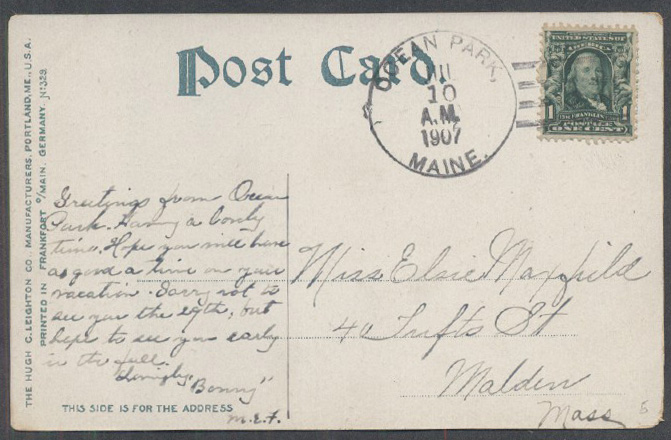 Post Card.
OCEAN PARK,
JUL
10
A.M.
1907
MAINE.
UNITED STATES OF
AMERICA
FRANKLIN
1 POSTAGE 1
ONE CENT
THE HUGH C. LEIGHTON CO., MANUFACTURERS, PORTLAND, ME., U.S.A.
PRINTED IN FRANKFORT O/MAIN, GERMANY. No 329
Greetings from Ocean
Park. Having a lovely
time. Hope you will have
as good a time on your
vacation. Sorry not to
see you the 29th, but
hope to see you early
in the fall.
Lovingly,
"Bonny"
M.E.F.
Miss Elsie Maxfield
40 Tufts St
Malden
Mass
THIS SIDE IS FOR THE ADDRESS